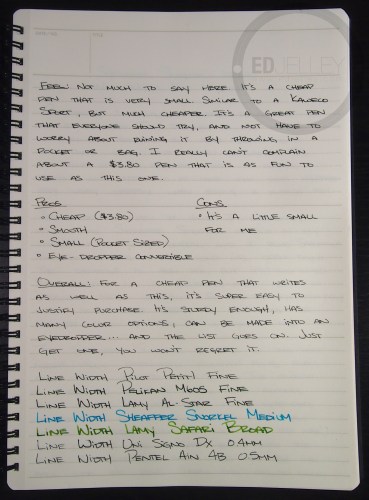 ED JELLEY
Feel: Not much to say here. It's a cheap
pen that is very small. Similar to a Kaweco
Sport, but much cheaper. It's a great pen
that everyone should try, and not have to
worry about ruining it by throwing in a
pocket or bag. I really can't complain
about a $3.80 pen that is as fun to
use as this one.
Pros Cons
• Cheap ($3.80) • It's a little small
• Smooth for me
• Small (Pocket Sized)
• Eye-dropper convertible
Overall: For a cheap pen that writes
as well as this, it's super easy to
justify purchase. It's sturdy enough, has
many color options, can be made into an
eyedropper... and the list goes on. Just
get one, you won't regret it.
Line Width Pilot Petit1 Fine
Line Width Pelikan M605 Fine
Line Width Lamy Al-Star Fine
Line Width Sheaffer Snorkel Medium
Line Width Lamy Safari Broad
Line Width Uni Signo DX 0.4mm
Line Width Pentel Ain 4B 0.5mm